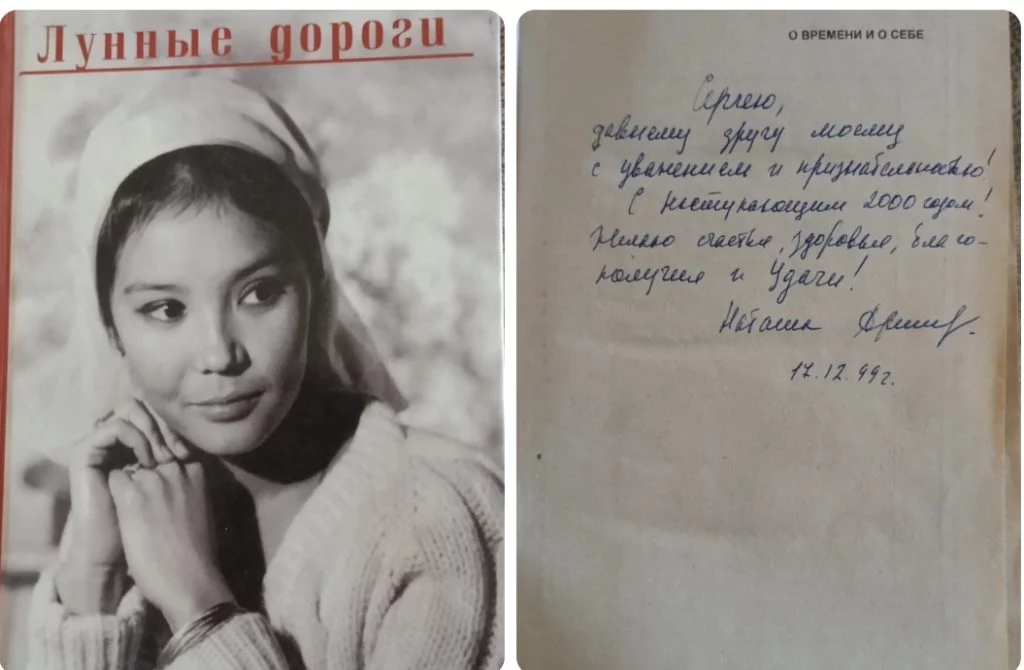 Лунные дороги
О ВРЕМЕНИ И О СЕБЕ
Сергею,
давнему другу моему
с уважением и признательностью!
С наступающим 2000 годом!
Желаю счастья, здоровья, благо-
получия и Удачи!
Наташа
17.12.99г.